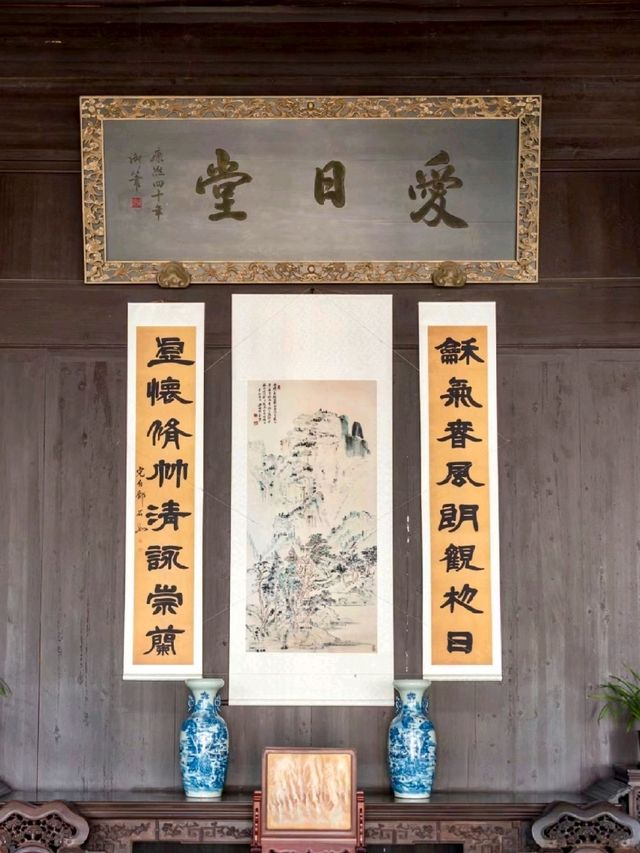 愛日堂
康熙四十年
御筆
龢氣春風朗觀初日
虛懷脩竹清詠崇蘭
完白鄧石如